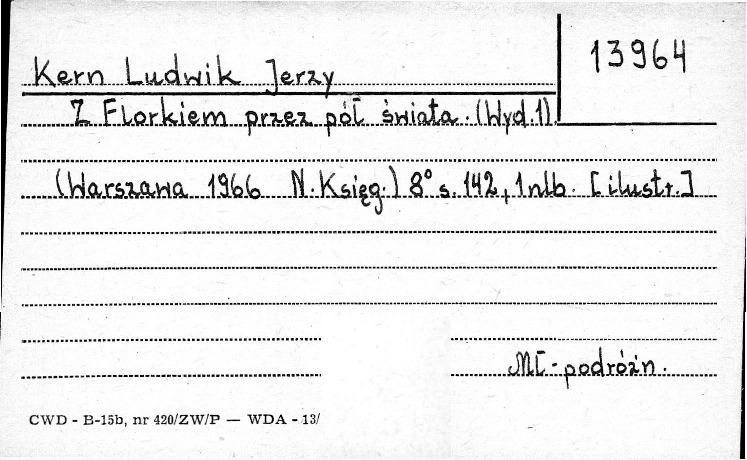 13964
Kern Ludwik Jerzy
Z Florkiem przez pół świata. (Wyd.1)
(Warszawa 1966 N. Księg.) 8° s. 142, 1 nlb. [ilustr.]
Mł - podróżn.
CWD - B-15b, nr 420/ZW/P — WDA - 13/